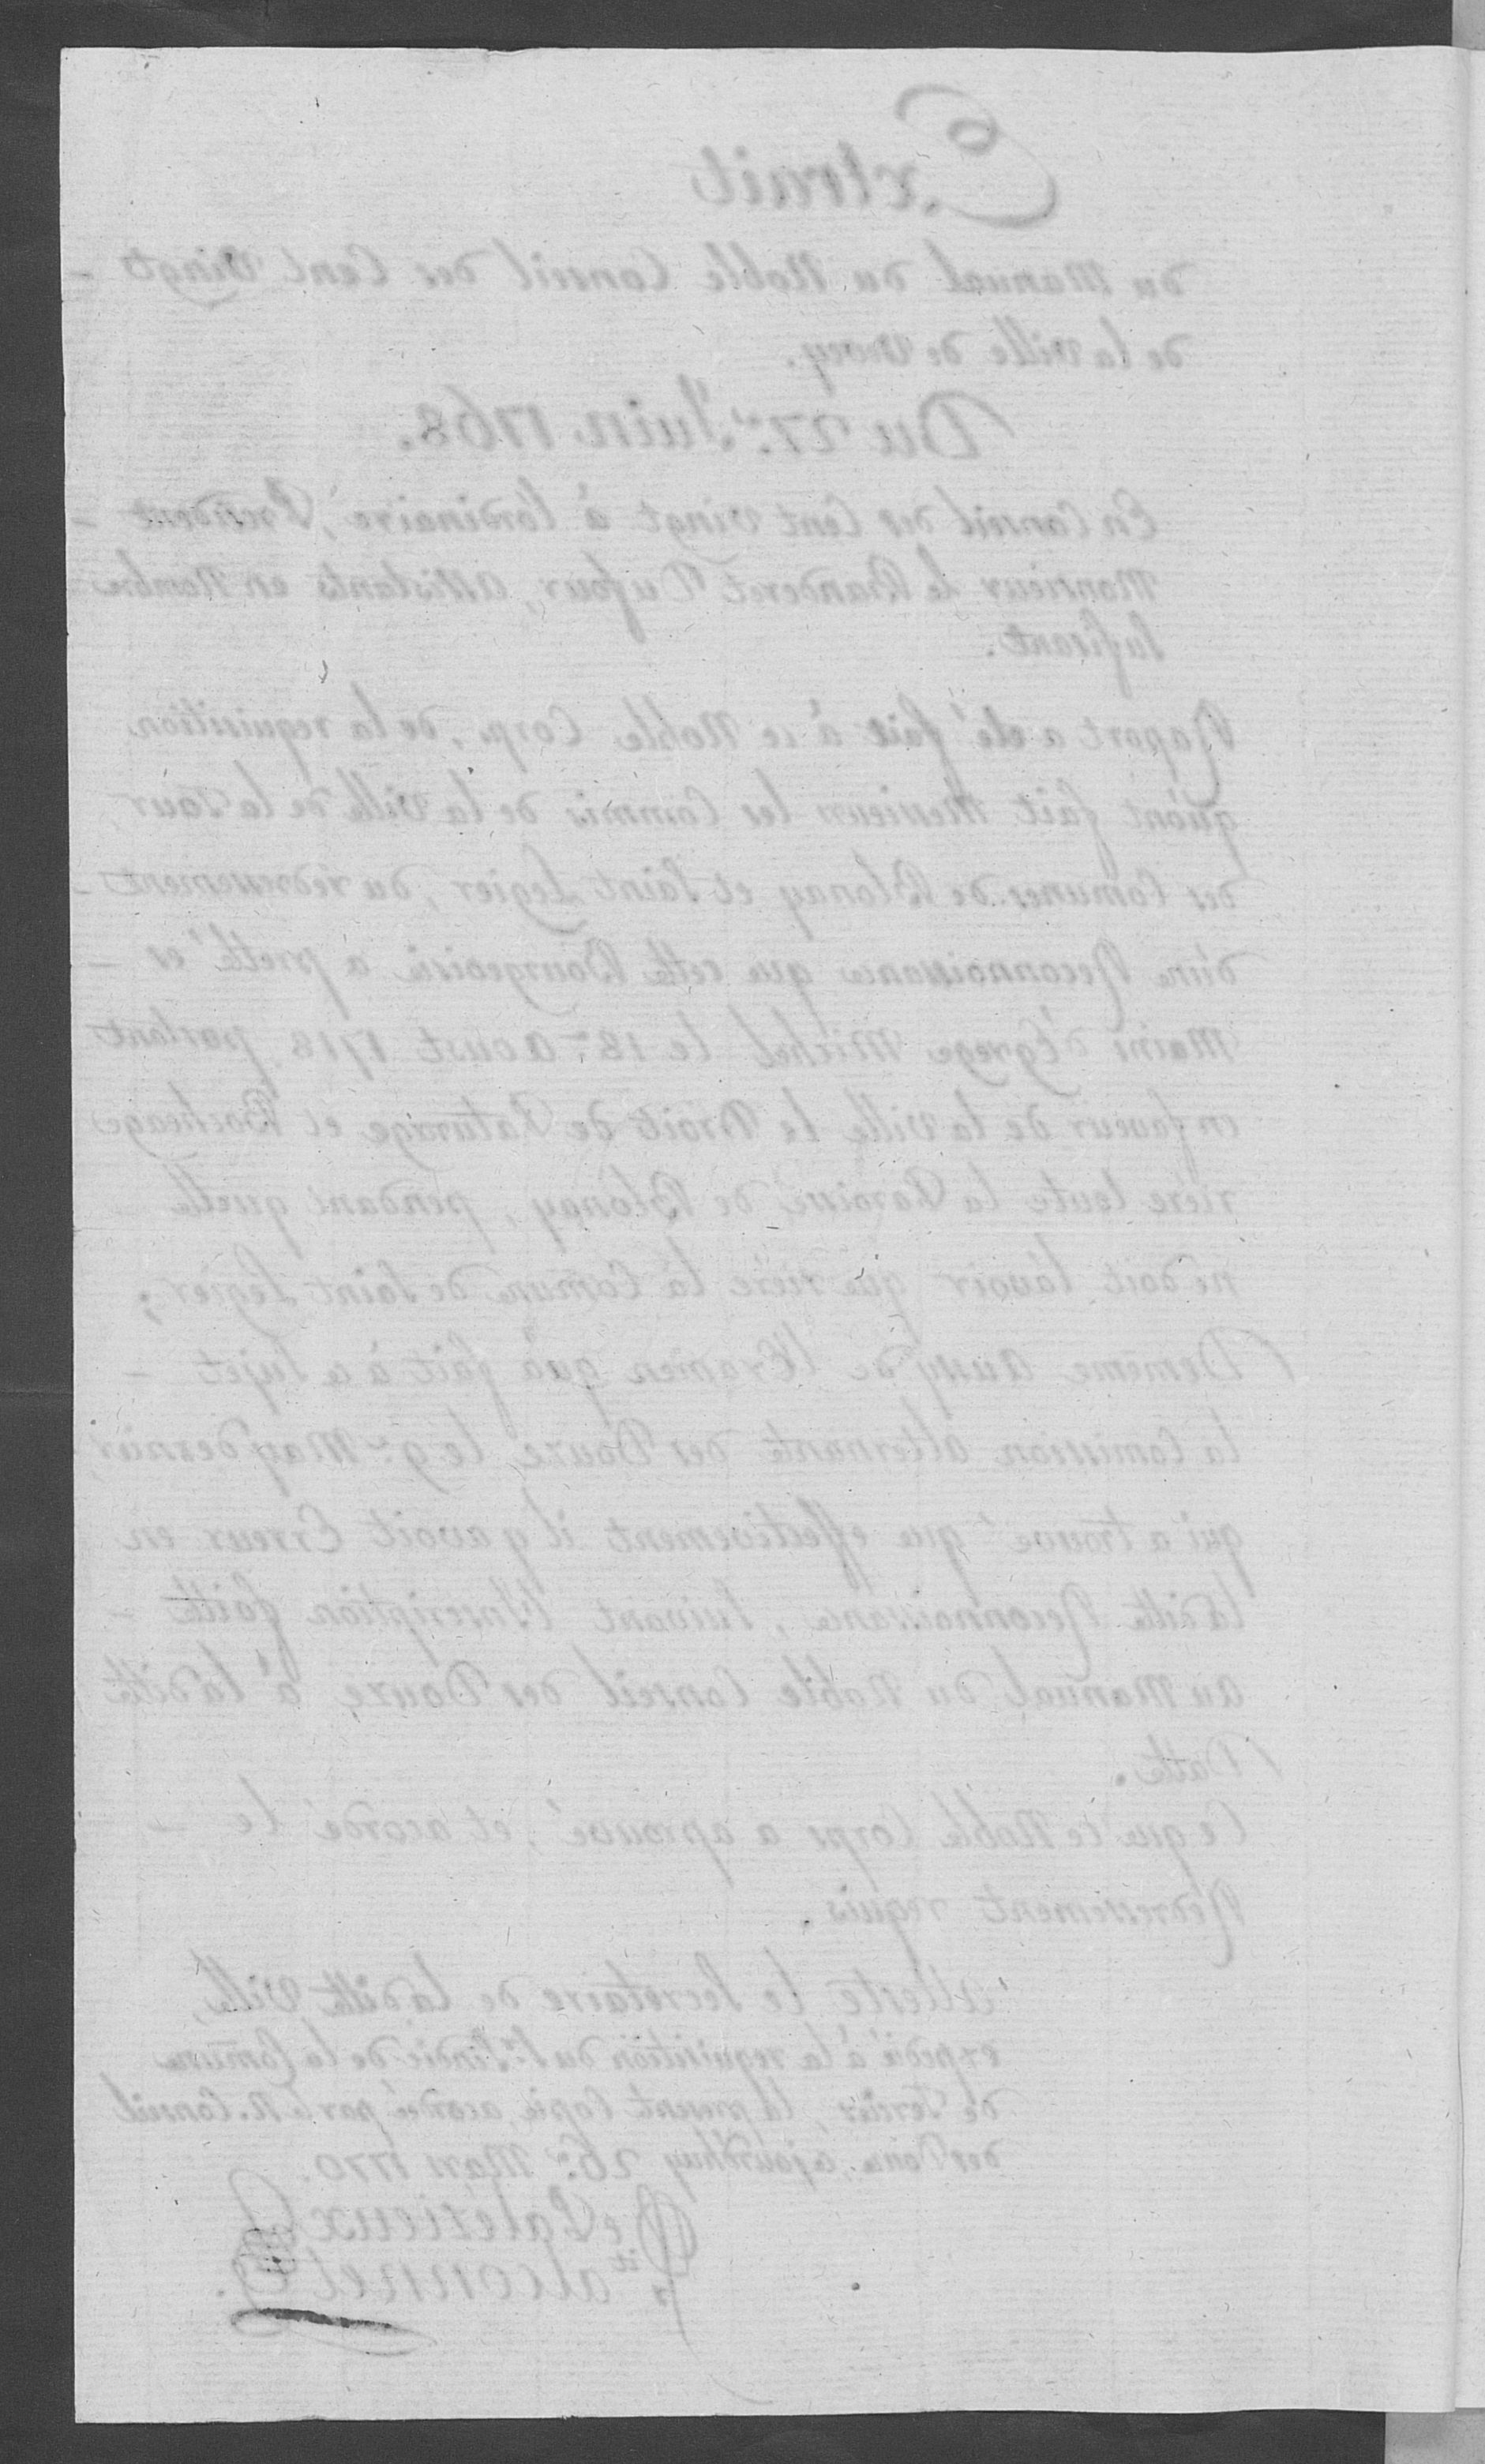 Extrait
du Manual du Noble Conseil des Cent Vingt
de la ville de Vevey.
Du 27.e Juin 1768.
En Conseil des Cent vingt à l'ordinaire, Président
Monsieur le Banderet Dufour, assistants en Nombre
sufisant.
Raport a été fait à ce Noble Corps, de la requisition
qu'ont fait Messieurs les Commis de la Ville de la Tour,
des Comunes de Blonay et Saint Legier, du redressement
d'une Reconnoissance que cette Bourgeoisie a prettée es
Mains d'Egrege Michel le 18.e Aoust 1718 portant
en faveur de la Ville le Droit de Paturage et Bocheage
riere toute la Paroisse de Blonay, pendant qu'elle
ne doit l'avoir que riere la Comune de Saint Legier;
De même aussy de l'Examen qu'a fait à ce sujet
la Comission alternante des Douze le 9.e May dernier,
qui a trouvé que effectivement il y avoit Erreur en
la ditte Reconnoissance, suivant l'Inscription faitte
au Manual du Noble Conseil des Douze, à la ditte
Datte.
Ce que ce Noble Corps a aprouvé, et acordé le
Redressement requis.
Atteste le Secretaire de la ditte Ville,
expedié à la requisition du Sr. Sindic de la Comune
de , la present Copie, acordé par le N. Conseil
des Douze, ajourdhuy 26.e Mars 1770.
De Palézieux
dit Falconnet